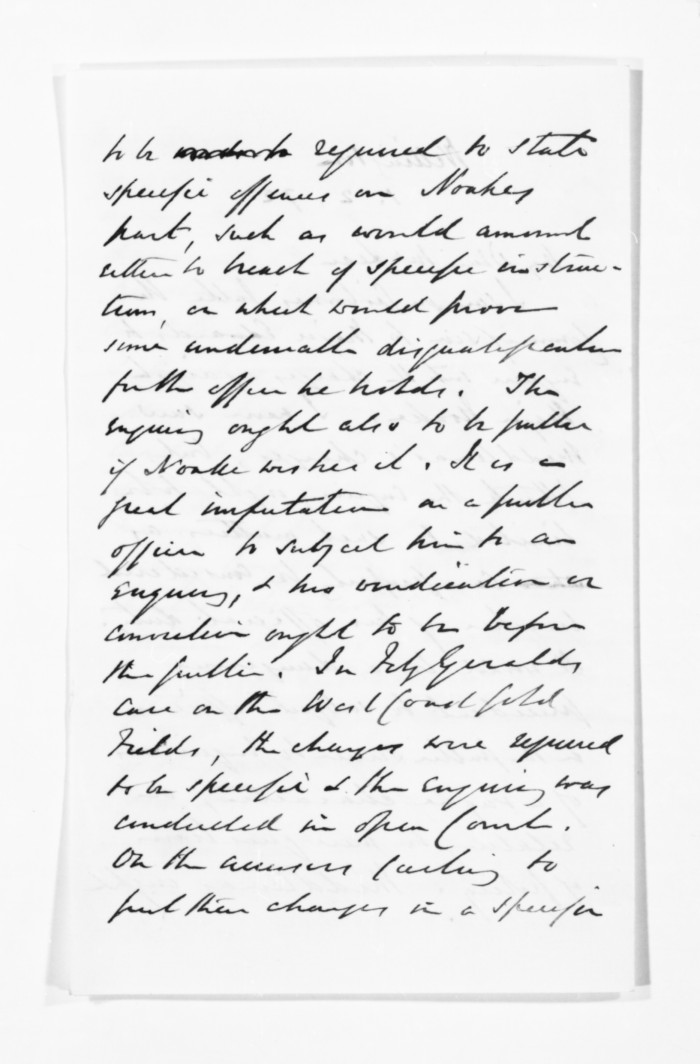 to be required to state
specific offences on Noakes
part, such as would amount
either to breach of specific instruc-
tions, or which would prove
some undeniable disqualification
for the office he holds. The
enquiry ought also to be public
if Noake wishes it. It is a
great imputation on a public
officer to subject him to an
enquiry, & his vindication or
conviction ought to be before
the public. In FitzGeralds
case on the West Coast Gold
Fields, the charges were required
to be specific & the enquiry was
conducted in open Court.
On the accusers failing to
put their charges in a specific